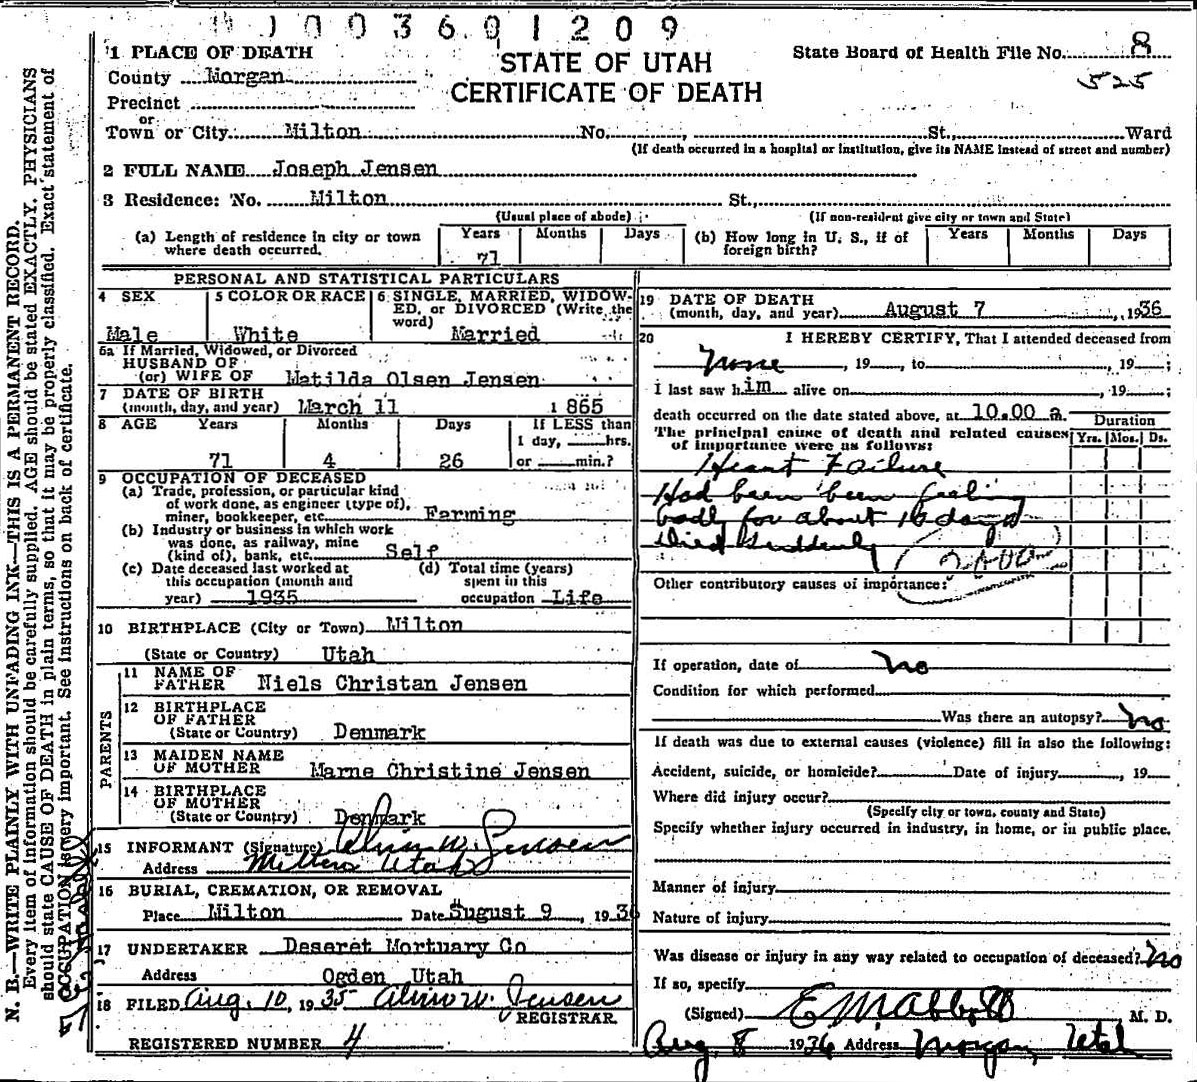 0 0 3 6 0 1 2 0 9
1 PLACE OF DEATH
County Morgan
Precinct
or
Town or City Milton No. , St., Ward
STATE OF UTAH
CERTIFICATE OF DEATH
State Board of Health File No. 8
525
(If death occurred in a hospital or institution, give its NAME instead of street and number)
2 FULL NAME Joseph Jensen
3 Residence: No. Milton St.,
(Usual place of abode) (If non-resident give city or town and State)
(a) Length of residence in city or town where death occurred. Years 71 Months Days
(b) How long in U. S., if of foreign birth? Years Months Days
PERSONAL AND STATISTICAL PARTICULARS
4 SEX Male
5 COLOR OR RACE White
6 SINGLE, MARRIED, WIDOW-
ED, or DIVORCED (Write the
word) Married
6a If Married, Widowed, or Divorced
HUSBAND OF
(or) WIFE OF Matilda Olsen Jensen
7 DATE OF BIRTH
(month, day, and year) March 11 1865
8 AGE Years Months Days If LESS than
1 day, hrs.
71 4 26 or min.?
9 OCCUPATION OF DECEASED
(a) Trade, profession, or particular kind
of work done, as engineer (type of),
miner, bookkeeper, etc. Farming
(b) Industry or business in which work
was done, as railway, mine
(kind of), bank, etc. Self
(c) Date deceased last worked at
this occupation (month and
year) 1935
(d) Total time (years)
spent in this
occupation Life
10 BIRTHPLACE (City or Town) Milton
(State or Country) Utah
PARENTS
11 NAME OF
FATHER Niels Christan Jensen
12 BIRTHPLACE
OF FATHER
(State or Country) Denmark
13 MAIDEN NAME
OF MOTHER Marne Christine Jensen
14 BIRTHPLACE
OF MOTHER
(State or Country) Denmark
15 INFORMANT (Signature) Alvin W. Jensen
Address Milton Utah
16 BURIAL, CREMATION, OR REMOVAL
Place Milton Date August 9, 1936
17 UNDERTAKER Deseret Mortuary Co
Address Ogden Utah
18 FILED Aug. 10, 1935 Alvin W. Jensen
REGISTRAR.
REGISTERED NUMBER 4
19 DATE OF DEATH
(month, day, and year) August 7, 1936
20 I HEREBY CERTIFY, That I attended deceased from
None, 19 , to , 19 ;
I last saw him alive on , 19 ;
death occurred on the date stated above, at 10.00 a.
The principal cause of death and related causes
of importance were as follows:
Duration
Yrs. Mos. Ds.
Heart Failure
Had been been feeling
badly for about 10 days
Died Suddenly
Other contributory causes of importance:
If operation, date of no
Condition for which performed
Was there an autopsy? no
If death was due to external causes (violence) fill in also the following:
Accident, suicide, or homicide? Date of injury , 19
Where did injury occur?
(Specify city or town, county and State)
Specify whether injury occurred in industry, in home, or in public place.
Manner of injury
Nature of injury
Was disease or injury in any way related to occupation of deceased? no
If so, specify
(Signed) E M Abbott M. D.
Aug. 8 1936 Address Morgan, Utah
N. B.—WRITE PLAINLY WITH UNFADING INK—THIS IS A PERMANENT RECORD.
Every item of information should be carefully supplied. AGE should be stated EXACTLY. PHYSICIANS
should state CAUSE OF DEATH in plain terms, so that it may be properly classified. Exact statement of
OCCUPATION is very important. See instructions on back of certificate.